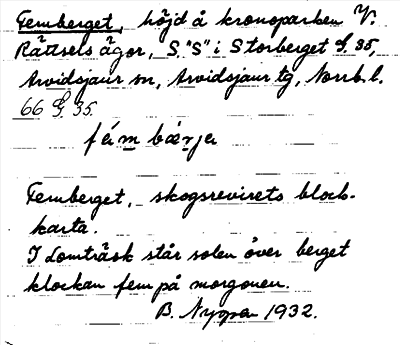 Femberget, höjd å kronoparken V.
Rättsels ägor, S. "S" i Storberget G. 35,
Arvidsjaur sn, Arvidsjaur tg, Norrb. l.
66 G. 35.
fám bærja
Femberget, skogsrevirets block-
karta.
I Lomträsk står solen över berget
klockan fem på morgonen.
B. Nygren 1932.